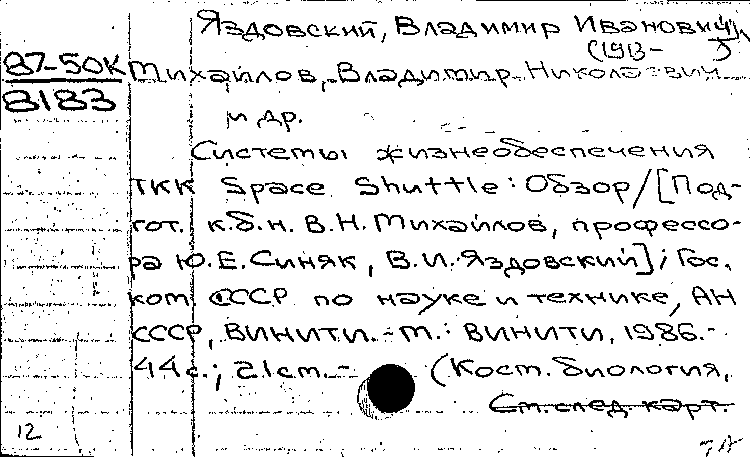 Яздовский, Владимир Иванович
(1913-    )
87-50К
8183
Михайлов, Владимир Николаевич
и др.
Системы жизнеобеспечения
ТКК Space Shuttle: Обзор/[Под-
гот. к.б.н. В.Н. Михайлов, профессо-
ра Ю.Е.Синяк, В.И. Яздовский]; Гос.
ком. СССР по науке и технике, АН
СССР, ВИНИТИ.-М.: ВИНИТИ, 1986.-
44 с.; 21см.- (Косм. биология,
См. след. карт.
12